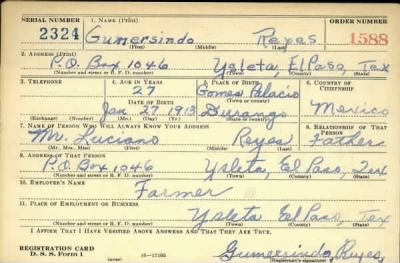 SERIAL NUMBER 1. NAME (Print) ORDER NUMBER
2324 Gumersindo Reyes 1588
(First) (Middle) (Last)
2. ADDRESS (Print)
P.O. Box 1046 Ysleta, El Paso, Tex
(Number and street or R. F. D. number) (Town) (County) (State)
3. TELEPHONE 4. AGE IN YEARS 5. PLACE OF BIRTH 6. COUNTRY OF CITIZENSHIP
27 Gomes Palacio
DATE OF BIRTH (Town or county)
Jan 27 1913 Durango Mexico
(Exchange) (Number) (Mo.) (Day) (Yr.) (State or country)
7. NAME OF PERSON WHO WILL ALWAYS KNOW YOUR ADDRESS 8. RELATIONSHIP OF THAT PERSON
Mr. Luciano Reyes Father
(Mr., Mrs., Miss) (First) (Middle) (Last)
9. ADDRESS OF THAT PERSON
P.O. Box 1046 Ysleta, El Paso, Tex
(Number and street or R. F. D. number) (Town) (County) (State)
10. EMPLOYER'S NAME
Farmer
11. PLACE OF EMPLOYMENT OR BUSINESS
Ysleta El Paso, Tex
(Number and street or R. F. D. number) (Town) (County) (State)
I AFFIRM THAT I HAVE VERIFIED ABOVE ANSWERS AND THAT THEY ARE TRUE.
REGISTRATION CARD
D. S. S. Form 1 (over) 16—17105 Gumersindo Reyes,
(Registrant's signature)